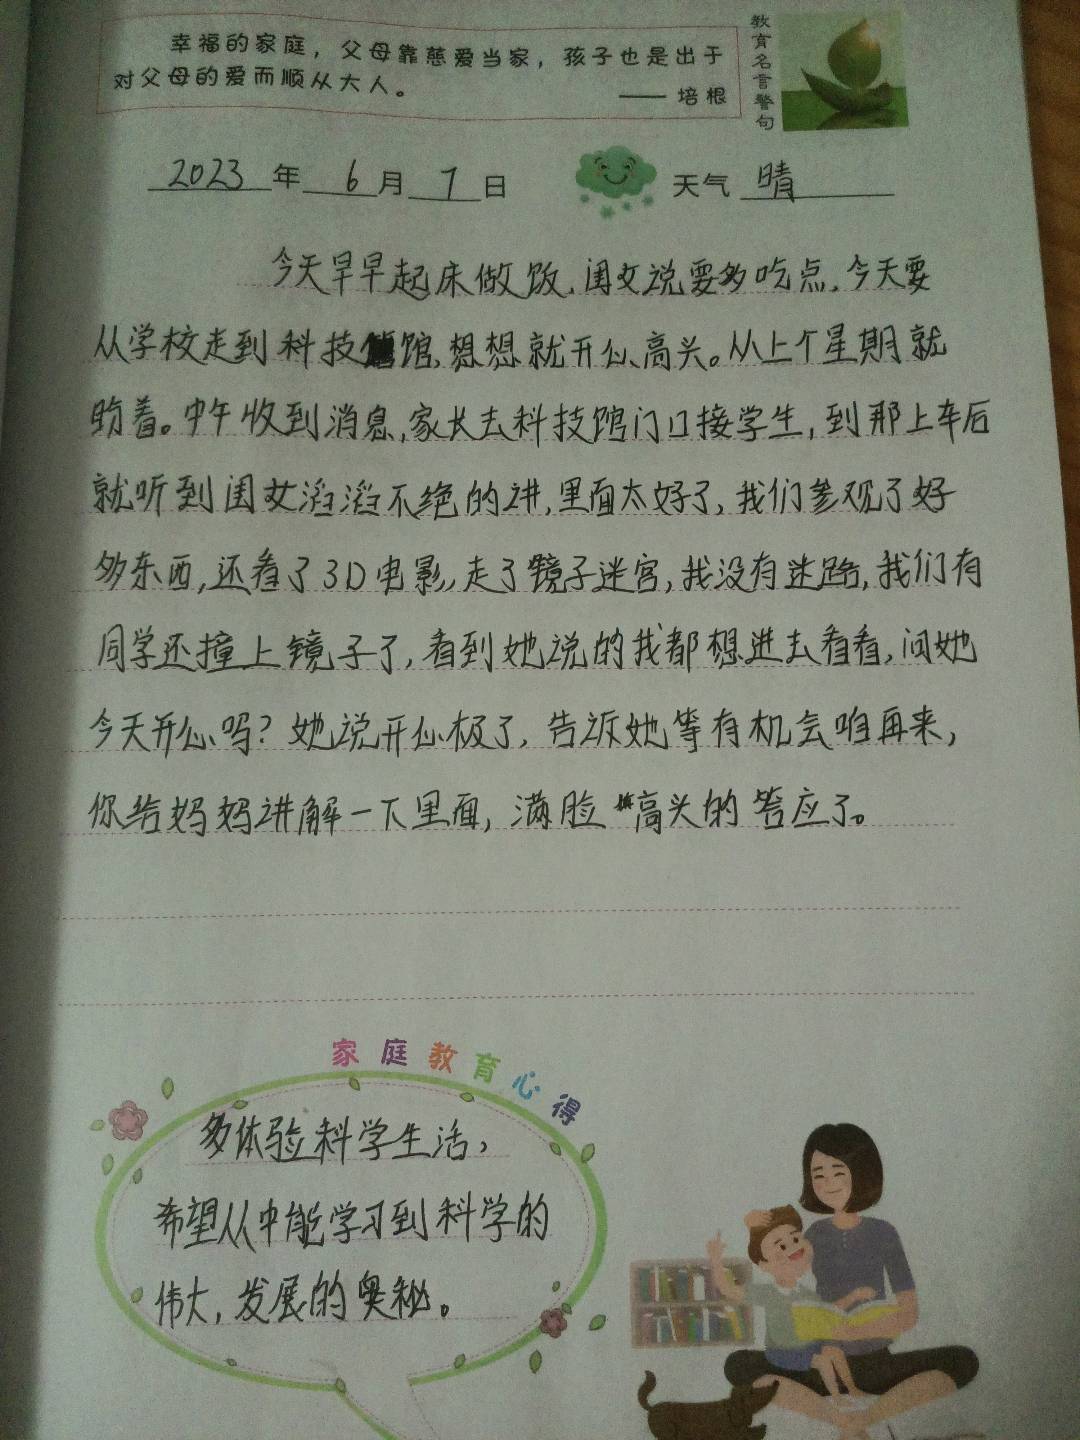 幸福的家庭，父母靠慈爱当家，孩子也是出于
对父母的爱而顺从大人。
—— 培根
教育名言警句
2023年6月7日
天气 晴
今天早早起床做饭，闺女说要多吃点，今天要
从学校走到科技馆，想想就开心、高兴。从上个星期就
盼着。中午收到消息，家长去科技馆门口接学生，到那上车后
就听到闺女滔滔不绝的讲，里面太好了，我们参观了好
多东西，还看了3D电影，走了镜子迷宫，我没有迷路，我们有
同学还撞上镜子了，看到她说的我都想进去看看，问她
今天开心吗？她说开心极了，告诉她等有机会咱再来，
你给妈妈讲解一下里面，满脸高兴的答应了。
家庭教育心得
多体验科学生活，
希望从中能学习到科学的
伟大，发展的奥秘。